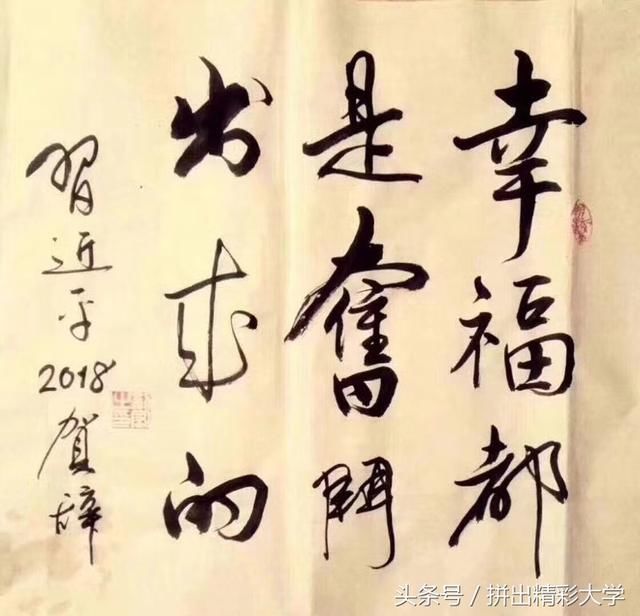 幸福都
是奮鬥
出来的
習近平2018贺辞
头条号／拼出精彩大学